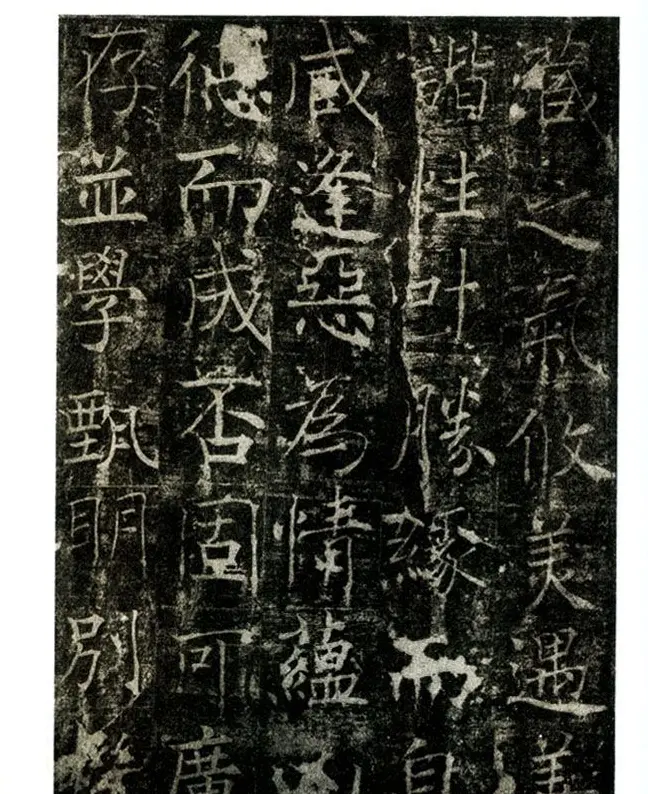 藏之氣攸美遇善
諧性叶勝緣而自
咸逢惡為情蘊凶
德而成否固可廣
存並學甄明別